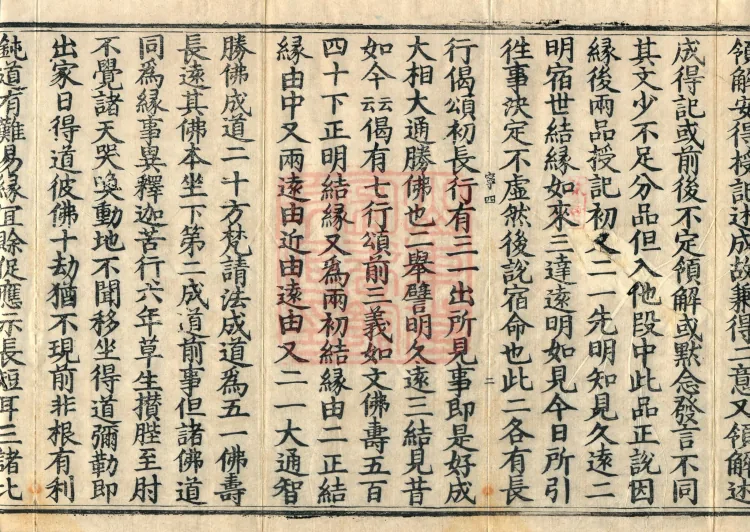 領解安得授記述成故兼得二意又領解述
成得記或前後不定領解或默念發言不同
其文少不足分品但入他段中此品正說因
緣後兩品授記初又二一先明知見久遠二
明宿世結緣如來三達遠明如見今日所引
徃事決定不虛然後說宿命也此二各有長
寧四
二
行偈頌初長行有三一出所見事即是好成
大相大通勝佛也二舉譬明久遠三結見昔
如今云云偈有七行頌前三義如文佛壽五百
四十下正明結緣又爲兩初結緣由二正結
緣由中又兩遠由近由遠由又二一大通智
勝佛成道二十方梵請法成道爲五一佛壽
長遠其佛本坐下第二成道前事但諸佛道
同爲緣事異釋迦苦行六年草生攢髀至肘
不覺諸天哭喚動地不聞移坐得道彌勒即
出家日得道彼佛十劫猶不現前非根有利
鈍道有難易緣宜賒促應示長短耳三諸比